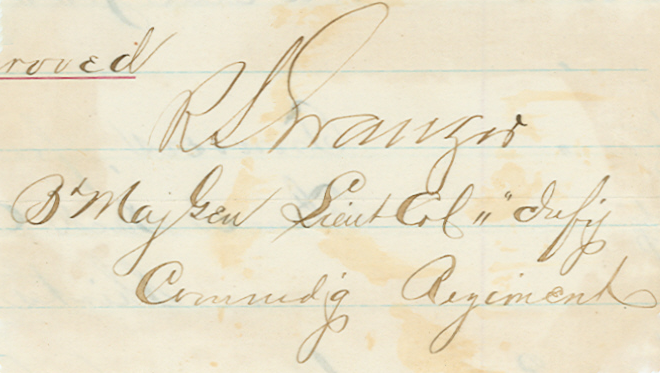 roved
R S Granger
Bt Maj Gen Lieut Col 11" Infy
Commdg Regiment